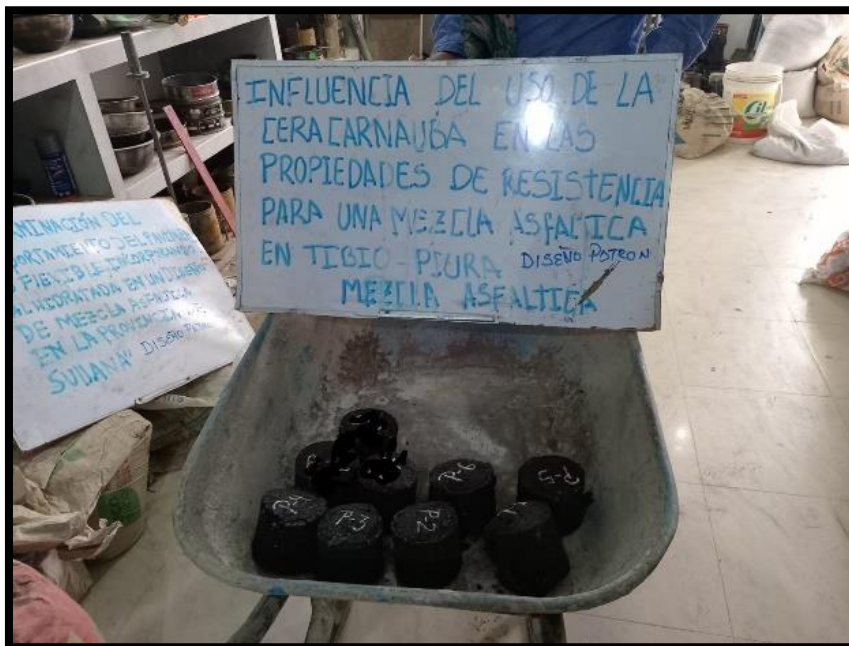 INFLUENCIA DEL USO DE LA
CERA CARNAUBA EN LAS
PROPIEDADES DE RESISTENCIA
PARA UNA MEZCLA ASFALTICA
EN TIBIO - PIURA DISEÑO PATRON
MEZCLA ASFALTICA
MINACIÓN DEL
PORTAMIENTO DEL
FLEXIBLE, INCORPORANDO
AL HIDRATADA EN UN DISEÑO
DE MEZCLA ASFALTICA
EN LA PROVINCIA DE
SULLANA" DISEÑO
P-6
P-5
P-4
P-3
P-2